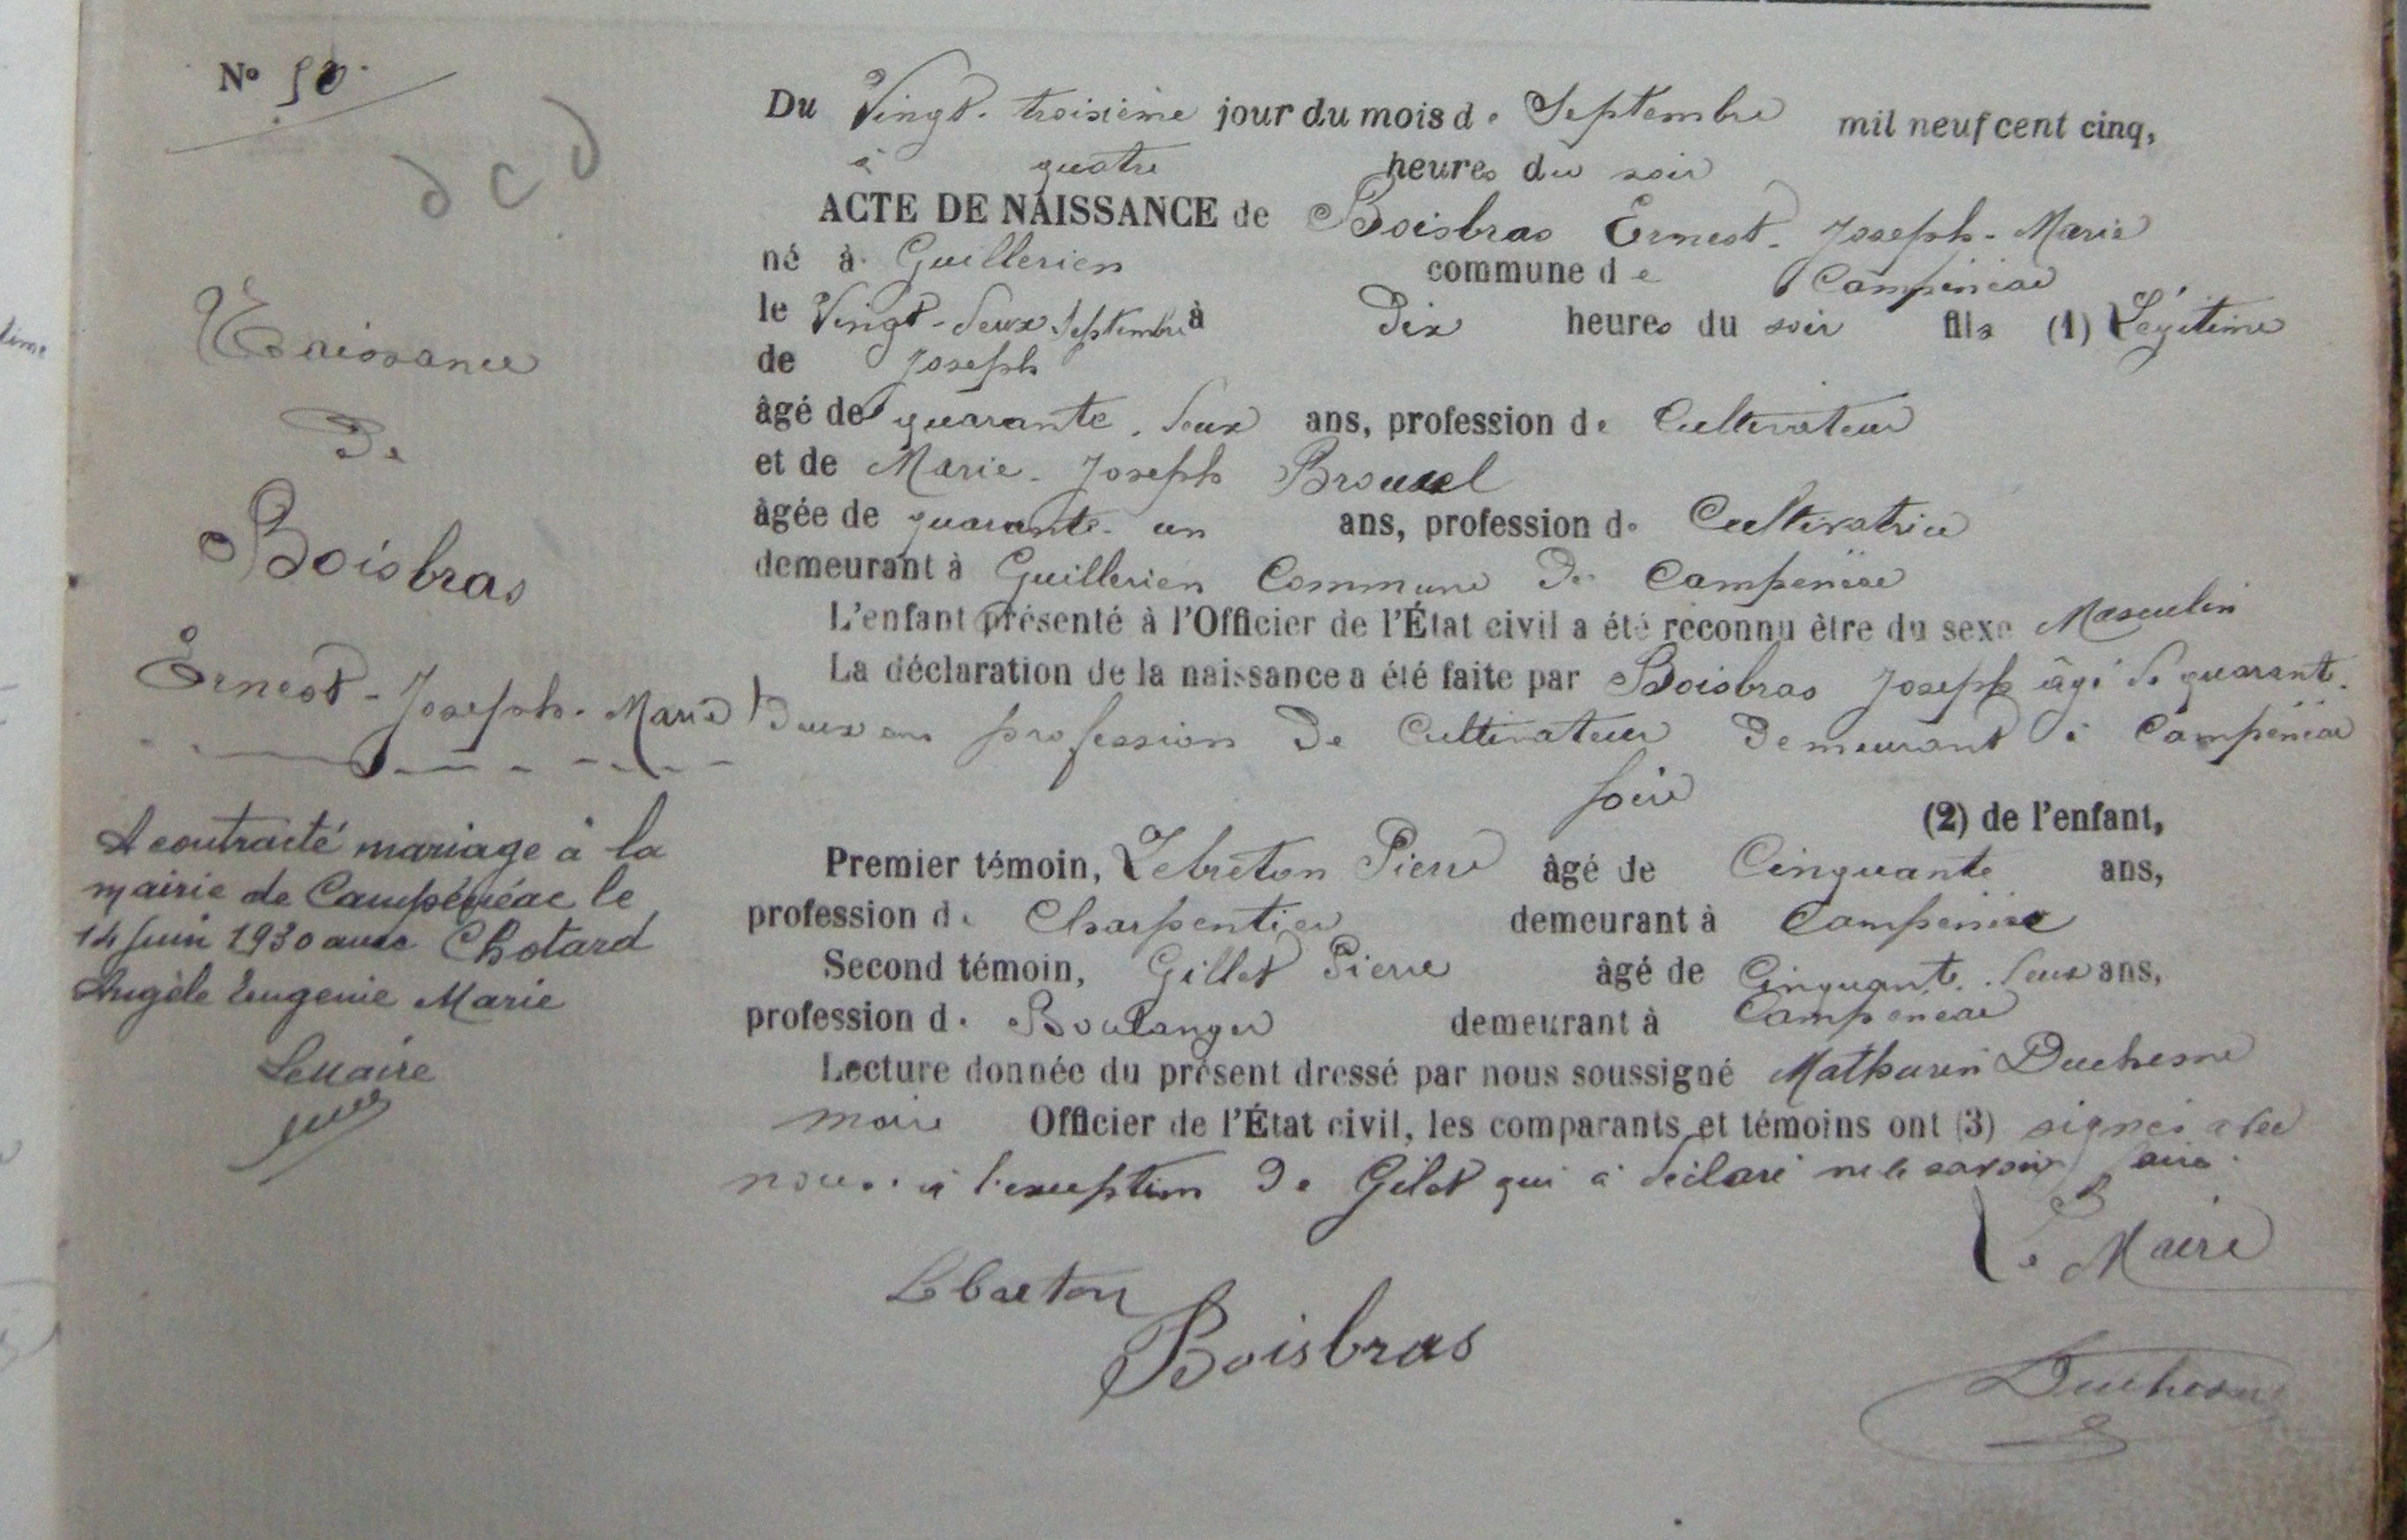 N° 50.
dcd
Naissance
De
Boisbras
Ernest-Joseph-Marie
A contracté mariage à la
mairie de Campénéac le
14 juin 1930 avec Chotard
Angèle Eugenie Marie
Le Maire
Du Vingt-troisième jour du mois de Septembre mil neuf cent cinq,
à quatre heures du soir
ACTE DE NAISSANCE de Boisbras Ernest-Joseph-Marie
né à Guillerien commune de Campénéac
le Vingt-deux Septembre à Dix heures du soir fils (1) Légitime
de Joseph
âgé de quarante-deux ans, profession de Cultivateur
et de Marie-Joseph Brouxel
âgée de quarante-un ans, profession de Cultivatrice
demeurant à Guillerien Commune De Campénéac
L'enfant présenté à l'Officier de l'État civil a été reconnu être du sexe Masculin
La déclaration de la naissance a été faite par Boisbras Joseph âgé de quarante-
Deux ans profession De Cultivateur Demeurant à Campénéac
père (2) de l'enfant,
Premier témoin, Lebreton Pierre âgé de Cinquante ans,
profession de Charpentier demeurant à Campénéac
Second témoin, Gillet Pierre âgé de Cinquante-deux ans,
profession de Boulanger demeurant à Campénéac
Lecture donnée du présent dressé par nous soussigné Mathurin Duchesne
maire Officier de l'État civil, les comparants et témoins ont (3) signés avec
nous à l'exception De Gilet qui a déclaré ne le savoir faire.
Le Maire
Lebreton
Boisbras
Duchesne